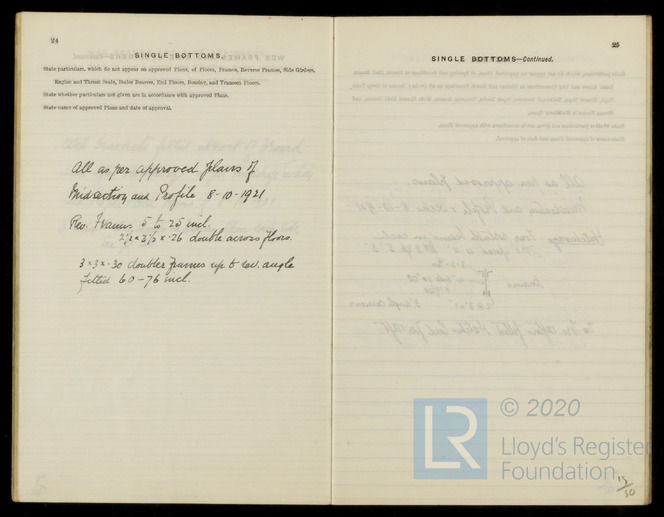 24
SINGLE BOTTOMS.
State particulars, which do not appear on approved Plans, of Floors, Frames, Reverse Frames, Side Girders,
Engine and Thrust Seats, Boiler Bearers, End Floors, Bossing, and Transom Floors.
State whether particulars not given are in accordance with approved Plans.
State name of approved Plans and date of approval.
All as per approved plans of
Midsection and Profile 8-10-1921
Rev. Frames 5 to 25 incl.
2½ × 2½ × .26 double across floors.
3 × 3 × .30 doubler frames up to rev. angle
fitted 60-76 incl.
25
SINGLE BOTTOMS—Continued.
LR
© 2020
Lloyd's Register
Foundation